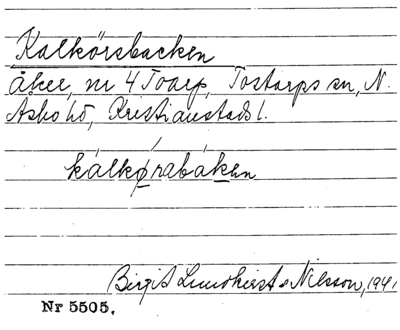 Kalkörsbacken
åker, nr 4 Toarp, Tostarps sn, N.
Åsbo hd, Kristianstads l.
kálkørabáken
Birgit Lundkvist Nilsson, 1941
Nr 5505.